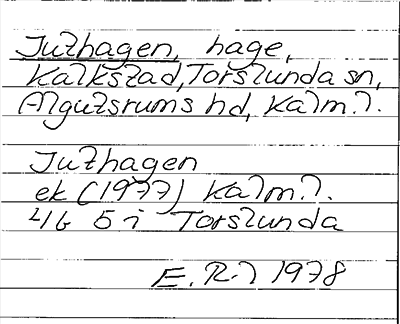 Juthagen, hage,
Kalkstad, Torslunda sn,
Algutsrums hd, Kalm.l.
Juthagen
ek (1977) Kalm.l.
4G 5 i Torslunda
E. R-l 1978